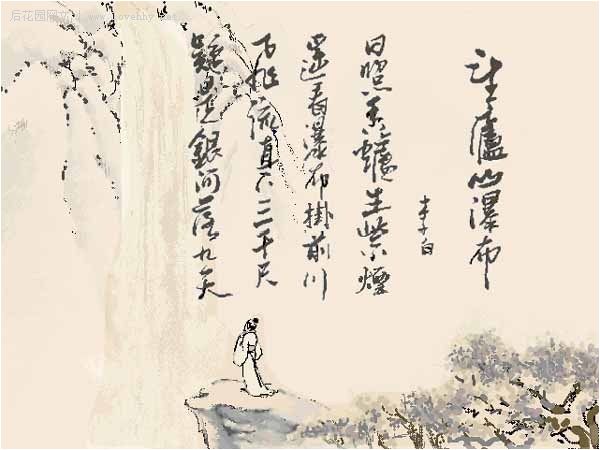 后花园网文 www.lovehhy.net
望廬山瀑布
李白
日照香爐生紫煙
遥看瀑布掛前川
飛流直下三千尺
疑是銀河落九天